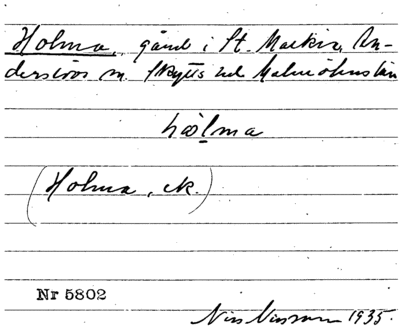 Holma, gård i St. Markie, An-
derslövs sn. Skytts hd Malmöhus län
hòlma
(Holma, ek.)
Nr 5802
Nils Nilsson 1935.